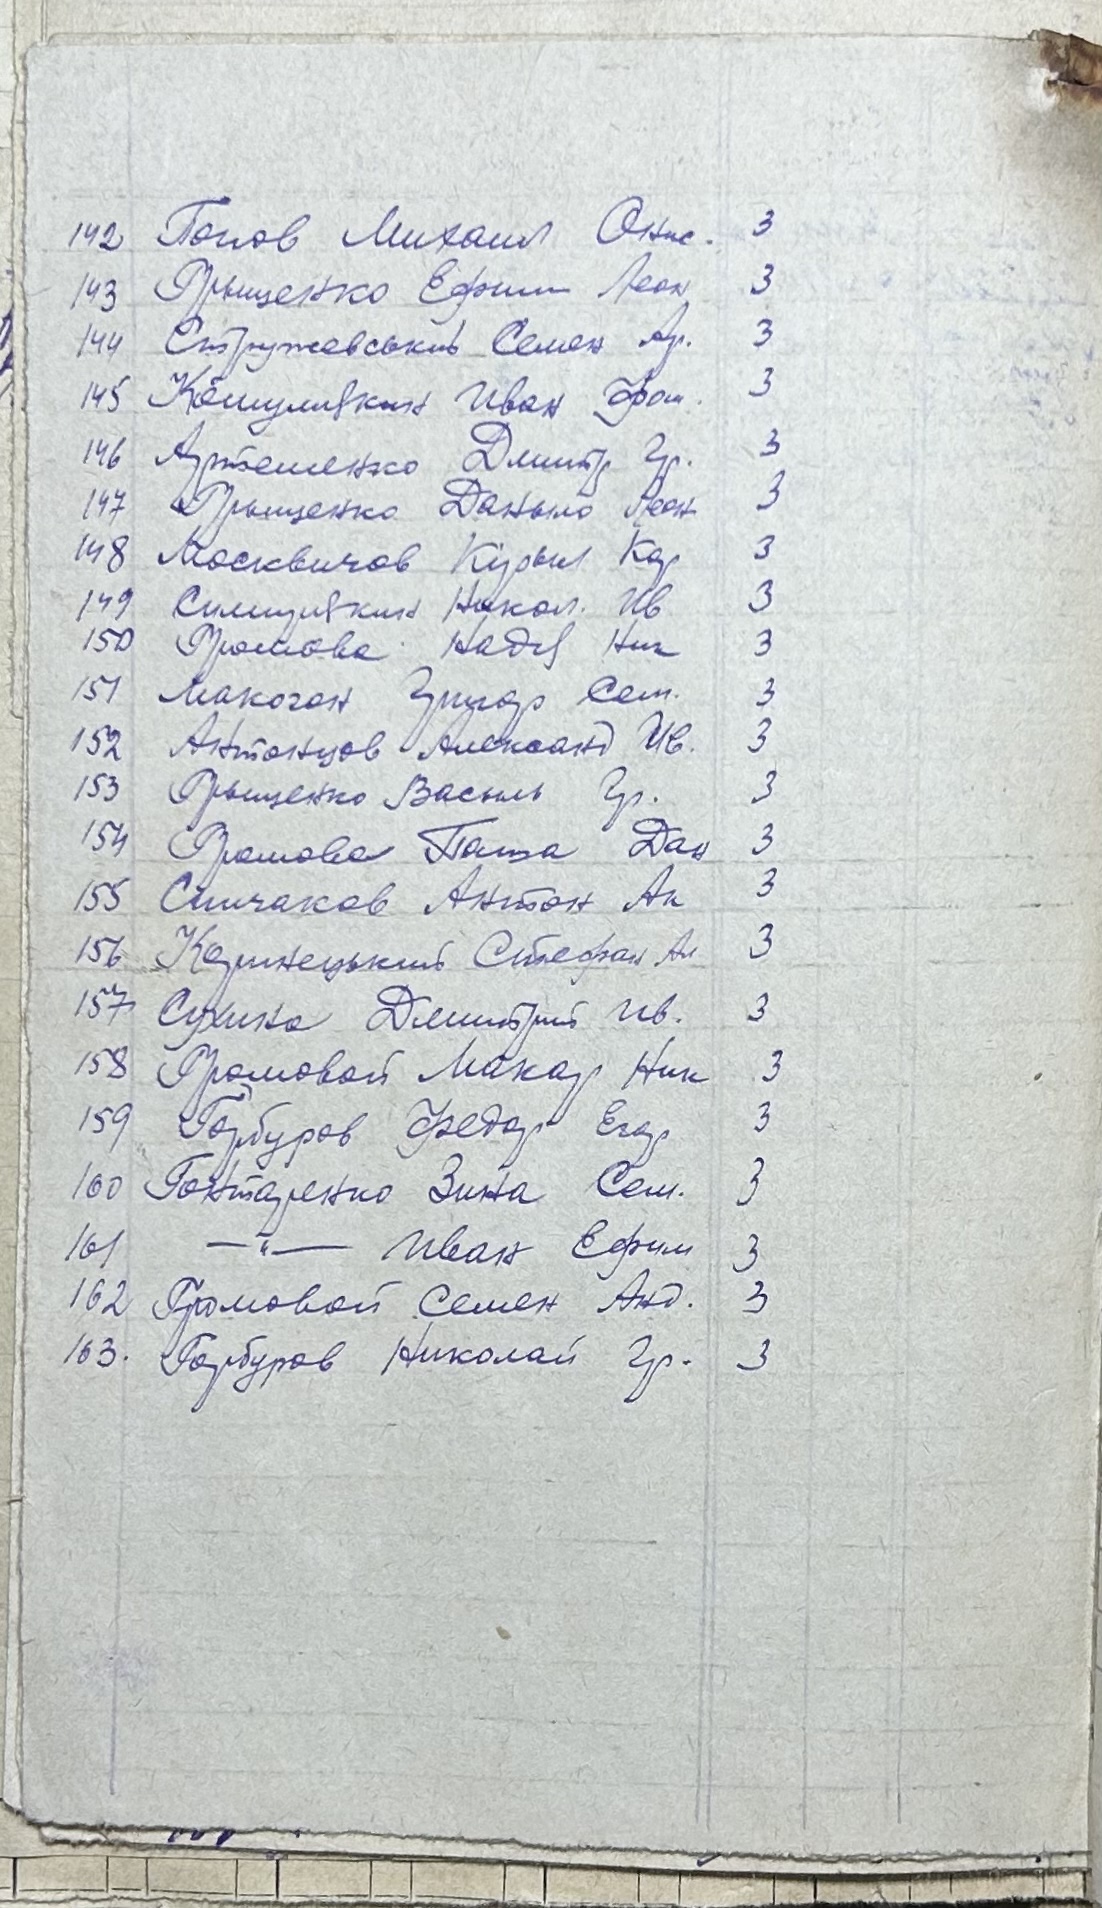 142 Попов Михаил Онис. 3
143 Грыценко Ефим Леон 3
144 Стружевський Семен Ар. 3
145 Иван Фом. 3
146 Артеменко Дмитр Гр. 3
147 Грыценко Даныло Леон 3
148 Москвичов Курыл Кар 3
149 Никол. Ив 3
150 Громова Надя Ник 3
151 Макоган Григор Сем. 3
152 Антонцов Александ Ив. 3
153 Грыценко Васыль Гр. 3
154 Громова Паша Дан 3
155 Спичаков Антон Ак 3
156 Стефан Ал 3
157 Дмитрий Ив. 3
158 Громовой Макар Ник 3
159 Горбуров Федор Егор 3
160 Гонтаренко Зина Сем. 3
161 —"— Иван Ефим 3
162 Громовой Семен Анд. 3
163. Горбуров Николай Гр. 3